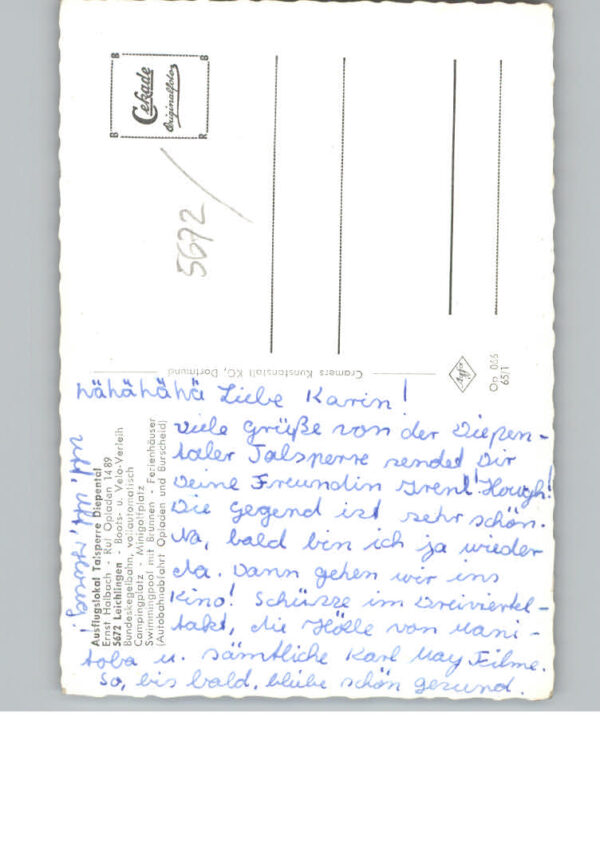 Cekade
Originalfoto
B
B
B
R
5672
Cramers Kunstanstalt KG, Dortmund
Agfa
Op 055
65/1
Ausflugslokal Talsperre Diepental
Ernst Halbach - Ruf Opladen 1489
5672 Leichlingen - Boots- u. Velo-Verleih
Bundeskegelbahn, vollautomatisch
Campingplatz - Minigolfplatz
Swimmingpool mit Brunnen - Ferienhäuser
(Autobahnabfahrt Opladen und Burscheid)
hähähähä Liebe Karin!
Viele Grüße von der Diepen-
taler Talsperre sendet Dir
Deine Freundin Howgh!
Die Gegend ist sehr schön.
Na, bald bin ich ja wieder
da. Dann gehen wir ins
Kino! Schüsse im Dreiviertel-
takt, die Hölle von Mani-
toba u. sämtliche Karl May Filme.
So, bis bald, bleibe schön gesund.